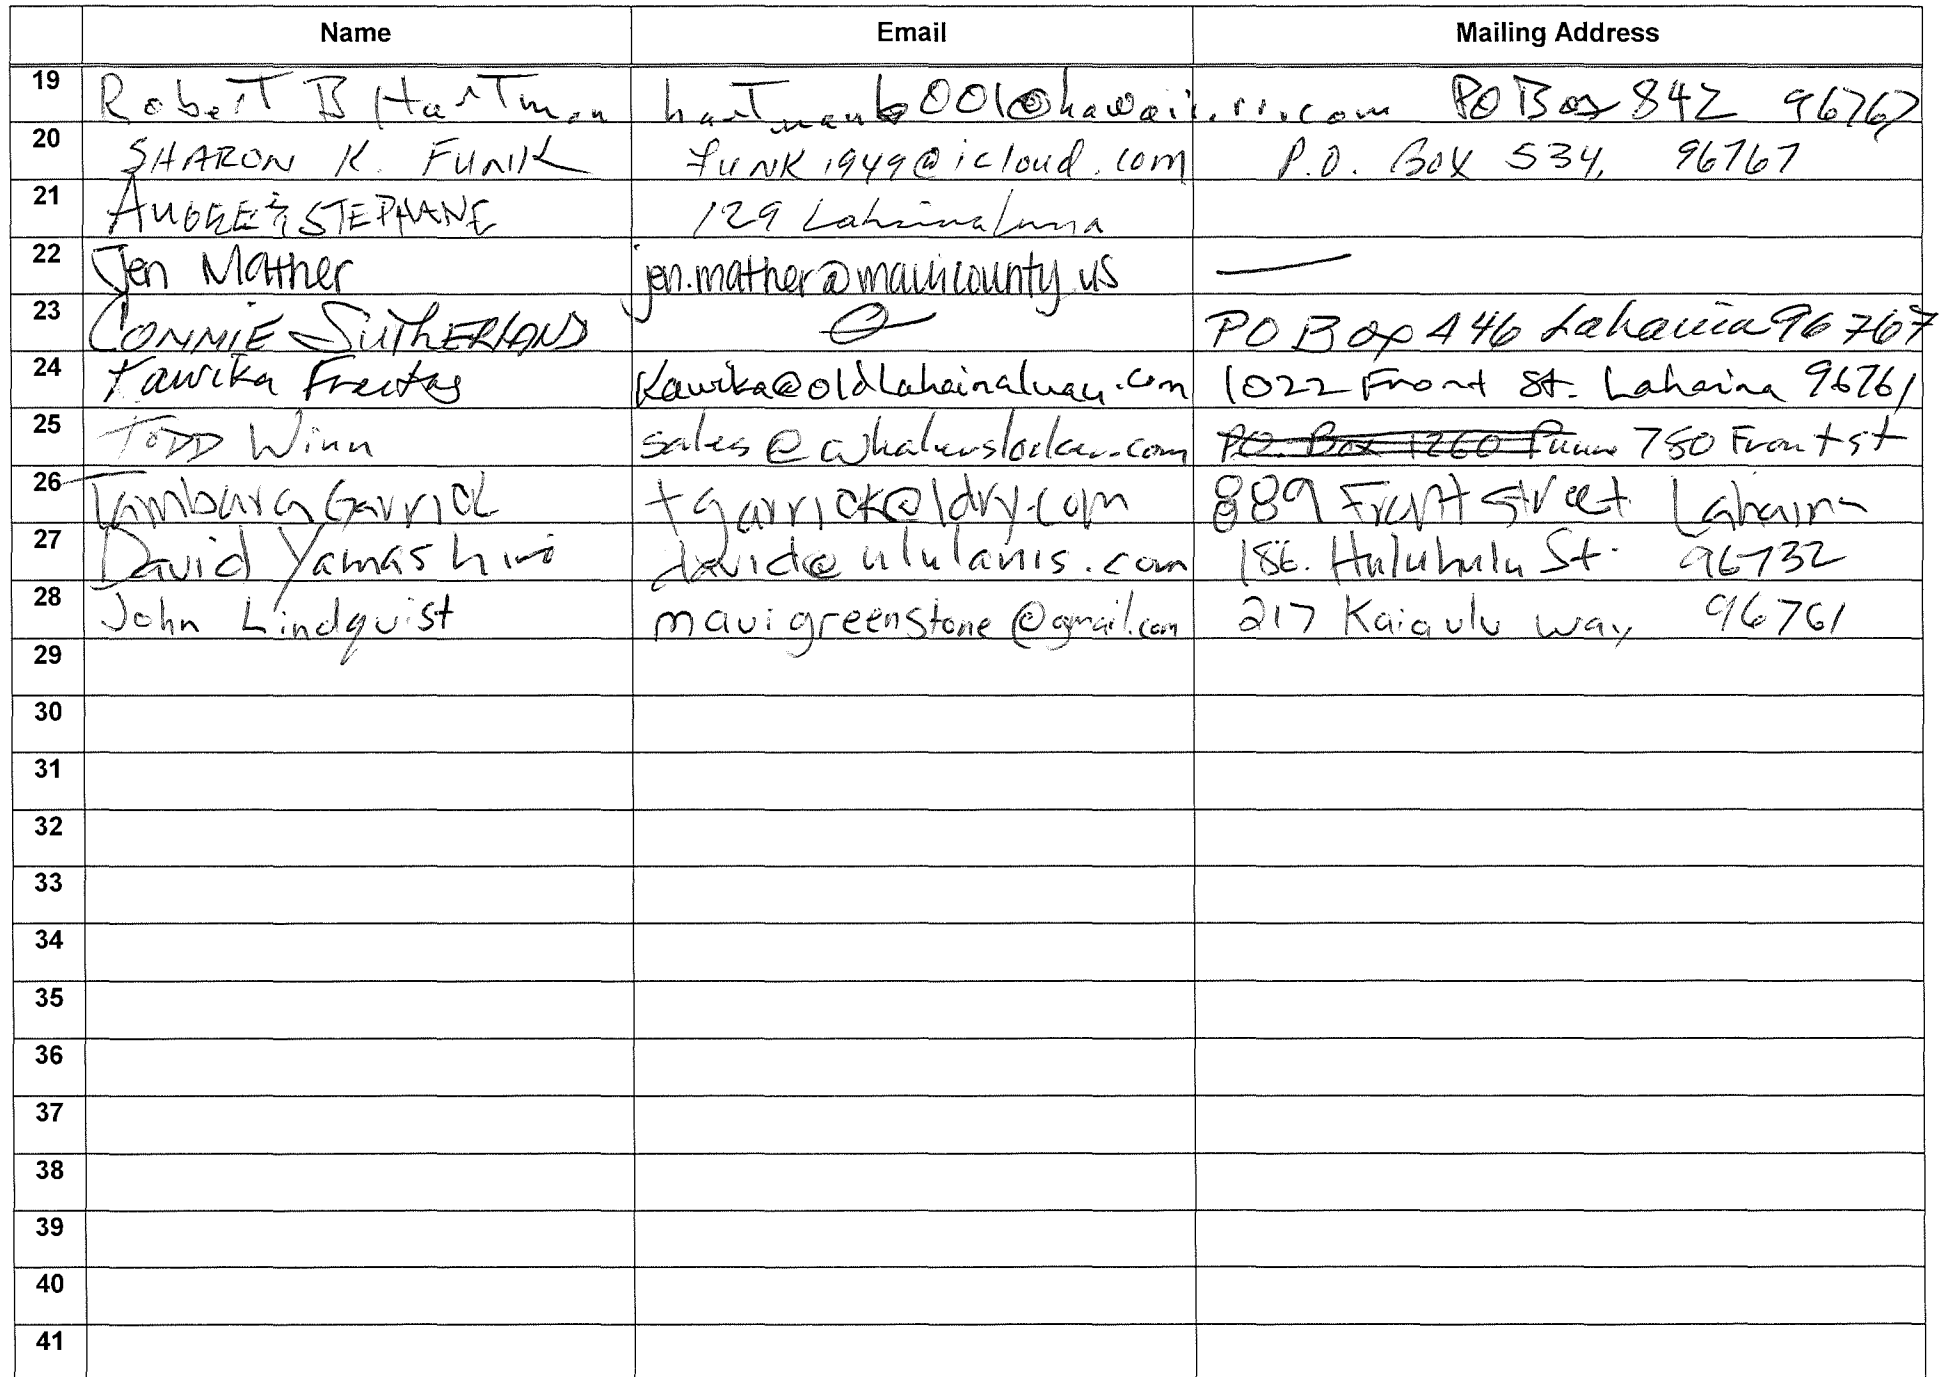 Name Email Mailing Address
19 Robert B Hartman hartmanb001@hawaii.rr.com PO Box 842 96767
20 SHARON K. FUNK funk1949@icloud.com P.O. Box 534, 96767
21 STEPHANE 129 Lahainaluna
22 Jen Mather jen.mather@mauicounty.us —
23 CONNIE SUTHERLAND PO Box 446 Lahaina 96767
24 Kawika Freitas Kawika@oldLahainaluau.com 1022 Front St. Lahaina 96761
25 TODD Winn sales@whalerslocker.com PO. Box 1260 750 Front st
26 Tambara Garrick tgarrick@ldry.com 889 Front Street Lahaina
27 David Yamashiro david@ululanis.com 186. Huluhulu St. 96732
28 John Lindquist mauigreenstone@gmail.com 217 Kaiaulu Way 96761
29
30
31
32
33
34
35
36
37
38
39
40
41